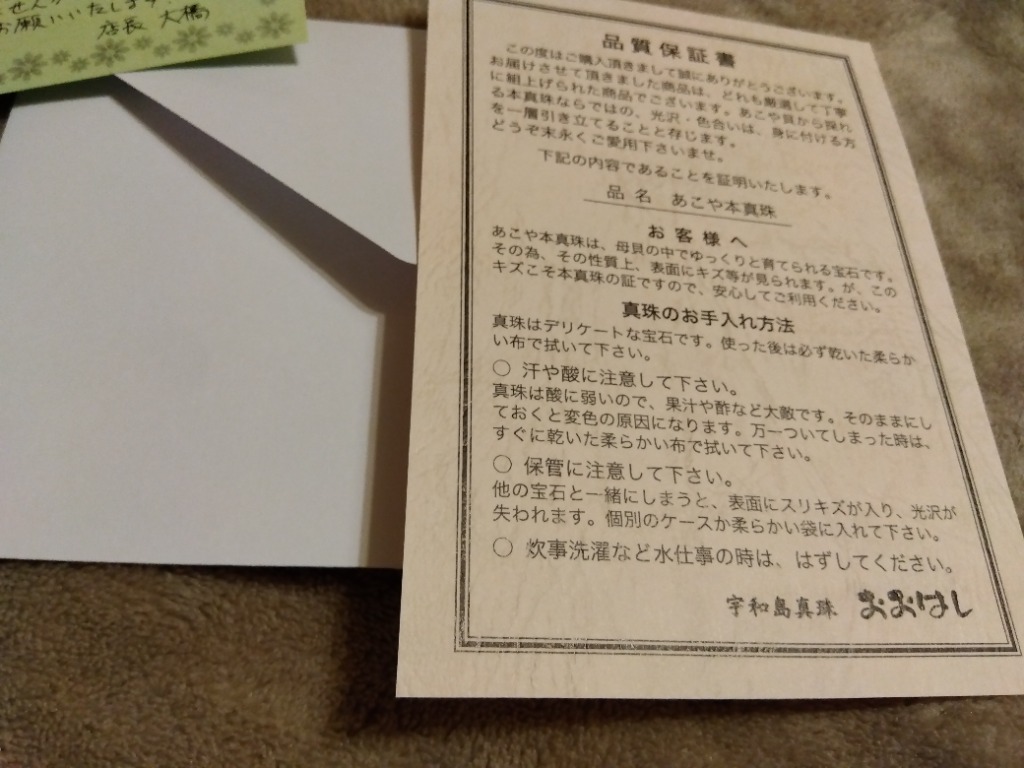 お願いいたします。
店長 大橋
品質保証書
この度はご購入頂きまして誠にありがとうございます。
お届けさせて頂きました商品は、どれも厳選して丁寧
に組上げられた商品でございます。あこや貝から採れ
る本真珠ならではの、光沢・色合いは、身に付ける方
を一層引き立てることと存じます。
どうぞ末永くご愛用下さいませ。
下記の内容であることを証明いたします。
品名 あこや本真珠
お客様へ
あこや本真珠は、母貝の中でゆっくりと育てられる宝石です。
その為、その性質上、表面にキズ等が見られます。が、この
キズこそ本真珠の証ですので、安心してご利用ください。
真珠のお手入れ方法
真珠はデリケートな宝石です。使った後は必ず乾いた柔らか
い布で拭いて下さい。
○ 汗や酸に注意して下さい。
真珠は酸に弱いので、果汁や酢など大敵です。そのままにし
ておくと変色の原因になります。万一ついてしまった時は、
すぐに乾いた柔らかい布で拭いて下さい。
○ 保管に注意して下さい。
他の宝石と一緒にしまうと、表面にスリキズが入り、光沢が
失われます。個別のケースか柔らかい袋に入れて下さい。
○ 炊事洗濯など水仕事の時は、はずしてください。
宇和島真珠 おおはし